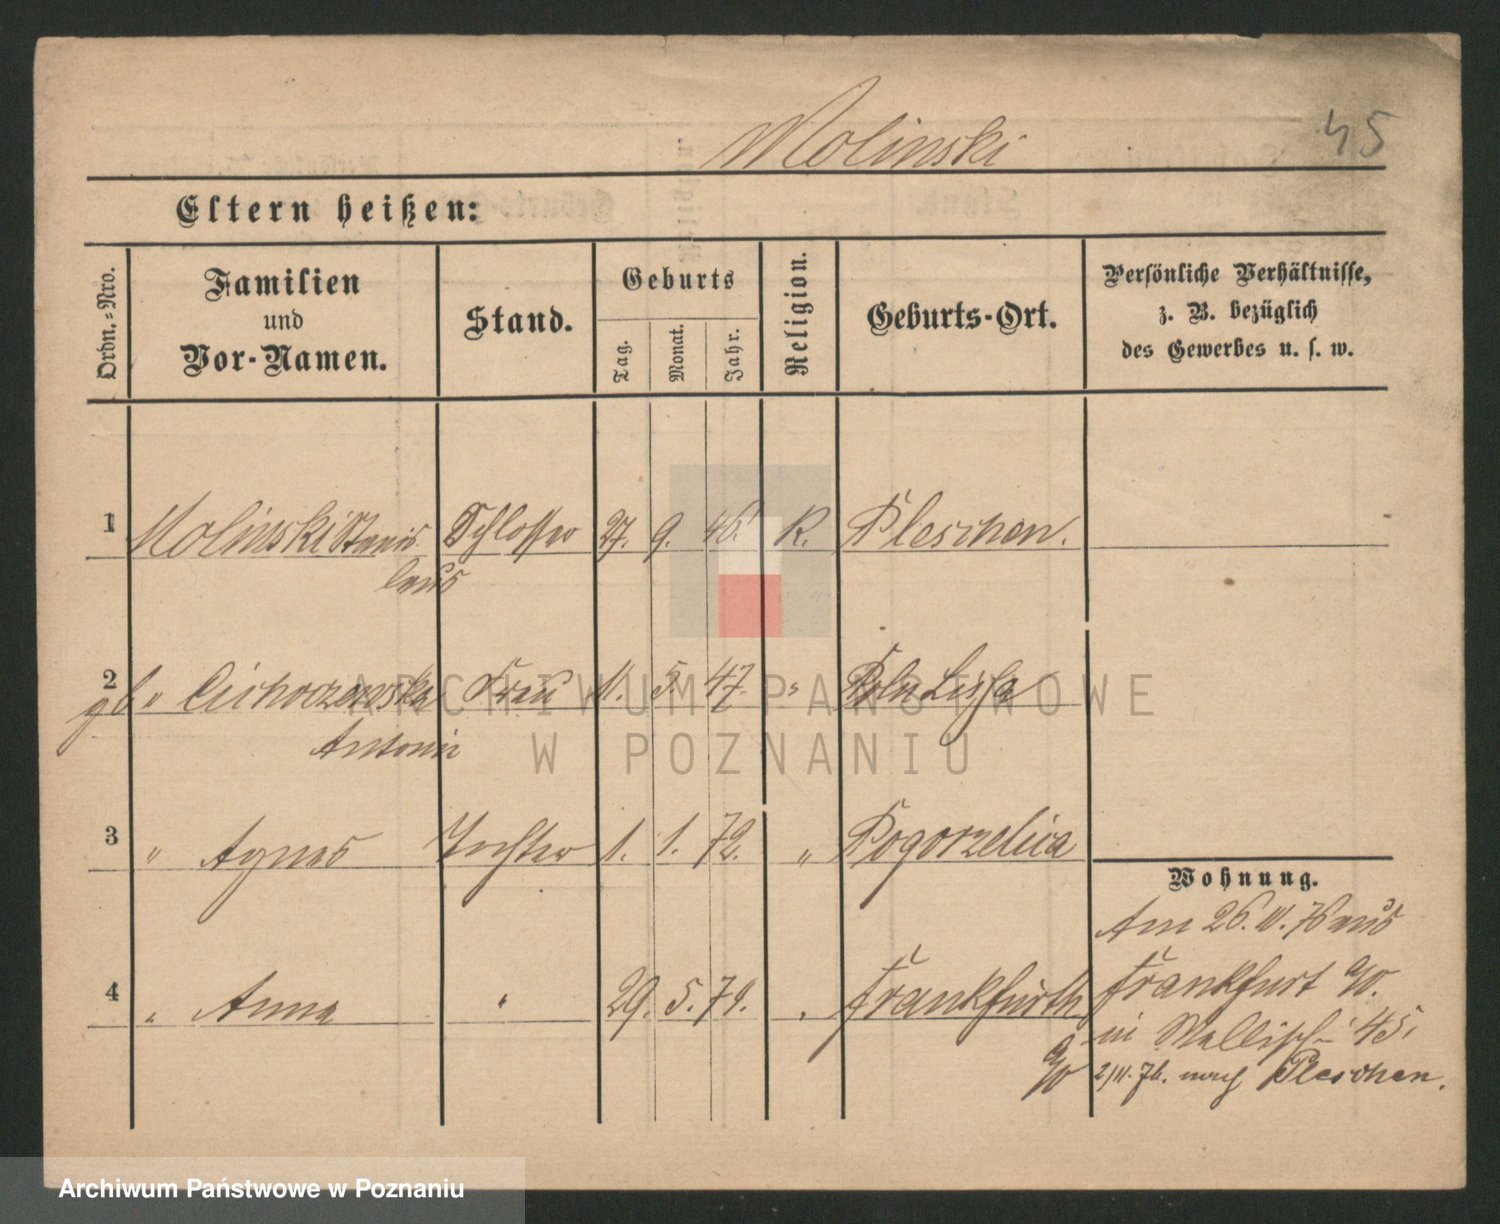 Molinski 45
Eltern heißen:
Ordn.-Nro.
Familien
und
Vor-Namen.
Stand.
Geburts
Tag.
Monat.
Jahr.
Religion.
Geburts-Ort.
Persönliche Verhältnisse,
z. B. bezüglich
des Gewerbes u. s. w.
1 Molinski Stanis Schlosser 27. 9. 46. K. Pleschen.
laus
2 gb " Cichorzewska Frau 11. 5. 47. " Poln Lissa
Antonie
3 " Agnes Tochter 1. 1. 72. " Pogorzelica
Wohnung.
Am 26. 11. 76 aus
4 " Anna " 29. 5. 74. " Frankfurth
a/O
Frankfurt a/O.
in Wallisch- 45,
nach Pleschen.
ARCHIWUM PAŃSTWOWE
W POZNANIU
Archiwum Państwowe w Poznaniu